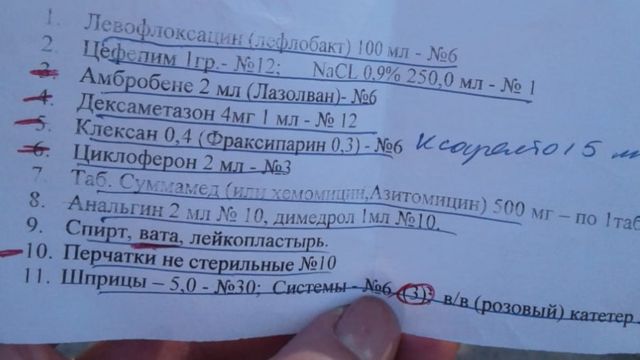 1. Левофлоксацин (лефлобакт) 100 мл - №6
2. Цефелим 1гр.- №12; NaCL 0,9% 250,0 мл - № 1
3. Амбробене 2 мл (Лазолван)- №6
4. Дексаметазон 4мг 1 мл - № 12
5. Клексан 0,4 (Фраксипарин 0,3) - №6 Ксарелто 15 м
6. Циклоферон 2 мл - №3
7. Таб. Суммамед (или хемомицин,Азитомицин) 500 мг – по 1таб
8. Анальгин 2 мл № 10, димедрол 1мл №10.
9. Спирт, вата, лейкопластырь.
10. Перчатки не стерильные №10
11. Шприцы – 5,0 - №30; Системы - №6 (3) в/в (розовый) катетер